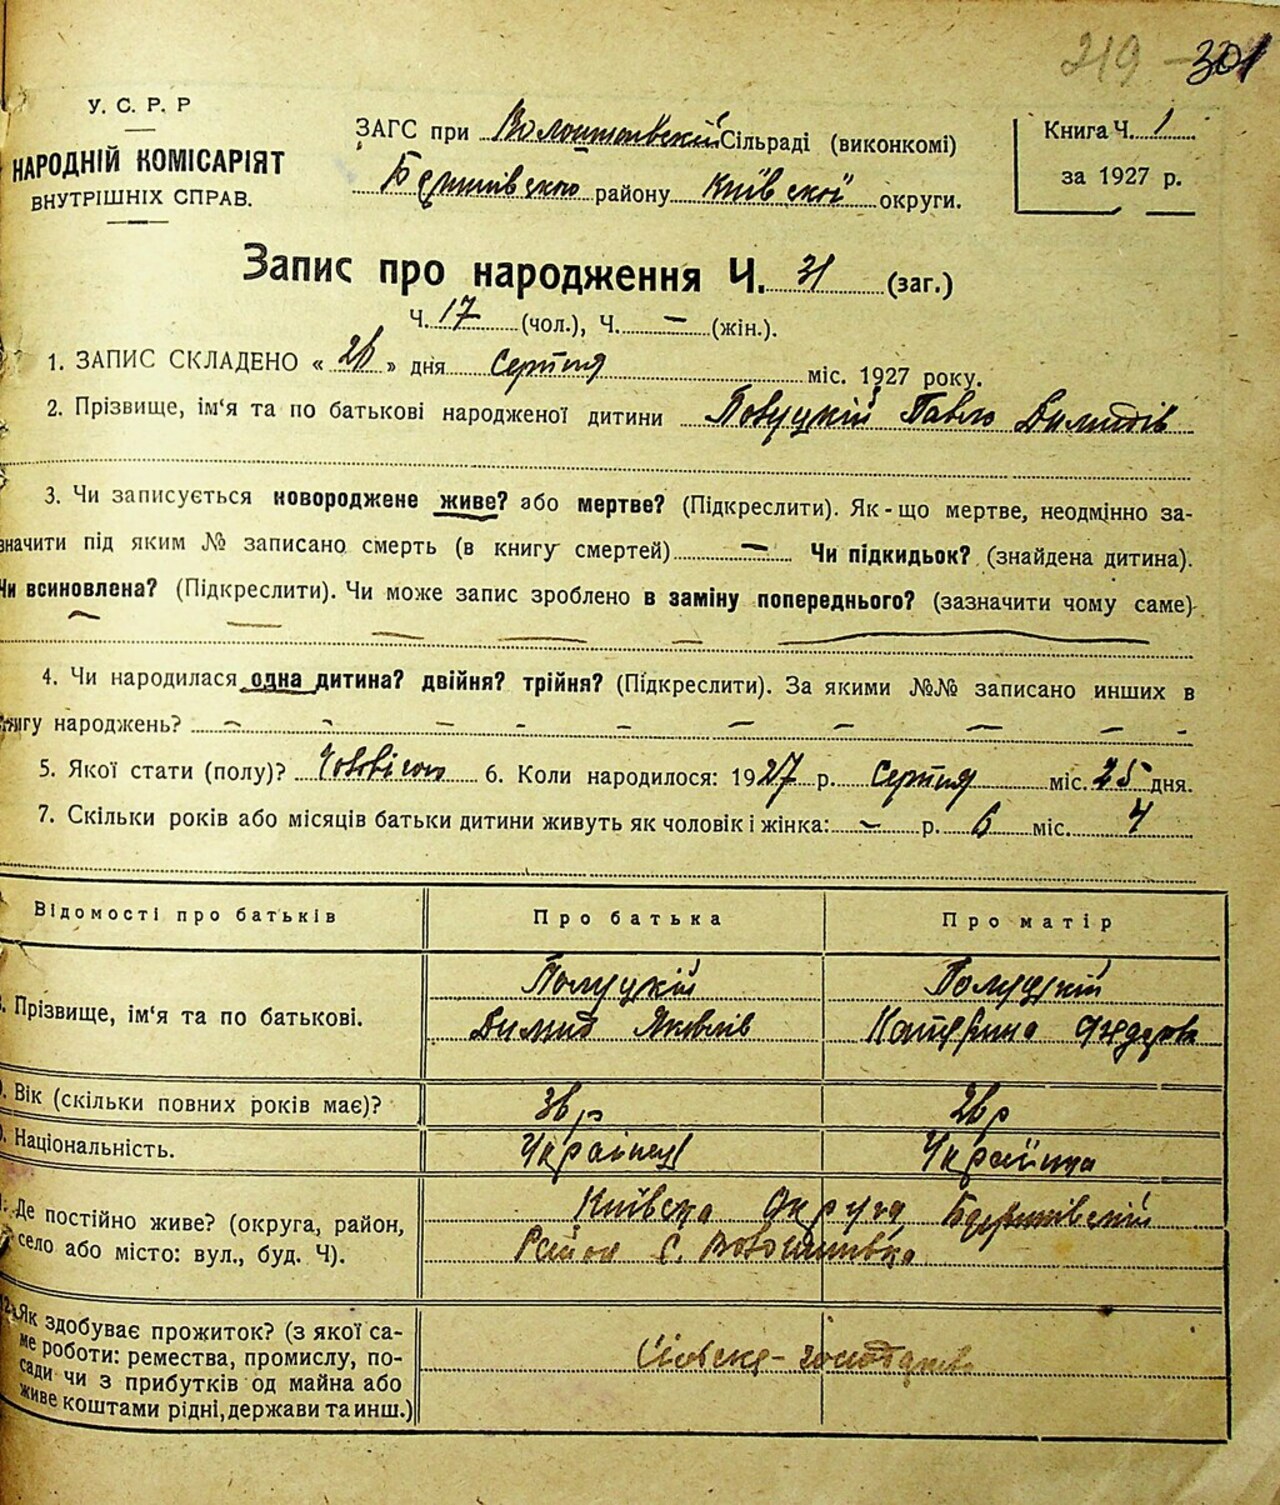 219 - 301
У. С. Р. Р
НАРОДНІЙ КОМІСАРІЯТ
ВНУТРІШНІХ СПРАВ.
ЗАГС при Сільраді (виконкомі)
району Київської округи.
Книга Ч. 1
за 1927 р.
Запис про народження Ч. 31 (заг.)
Ч. 17 (чол.), Ч. — (жін.).
1. ЗАПИС СКЛАДЕНО « 26 » дня Серпня міс. 1927 року.
2. Прізвище, ім‘я та по батькові народженої дитини Павло
3. Чи записується новороджене живе? або мертве? (Підкреслити). Як-що мертве, неодмінно за-
значити під яким № записано смерть (в книгу смертей) — Чи підкидьок? (знайдена дитина).
Чи всиновлена? (Підкреслити). Чи може запис зроблено в заміну попереднього? (зазначити чому саме)
4. Чи народилася одна дитина? двійня? трійня? (Підкреслити). За якими №№ записано инших в
книгу народжень? — — — — — — — — — —
5. Якої стати (полу)? 6. Коли народилося: 1927 р. Серпня міс. 25 дня.
7. Скільки років або місяців батьки дитини живуть як чоловік і жінка: — р. 6 міс. 4
Відомості про батьків Про батька Про матір
Полуцкій Полуцкій
8. Прізвище, ім‘я та по батькові.
Яковлів Катерина
9. Вік (скільки повних років має)? 36 р 26 р
10. Національність. Українец Українка
11. Де постійно живе? (округа, район, Київска Округа
село або місто: вул., буд. Ч). Район С.
12. Як здобуває прожиток? (з якої са-
ме роботи: ремества, промислу, по-
сади чи з прибутків од майна або
живе коштами рідні, держави та инш.)